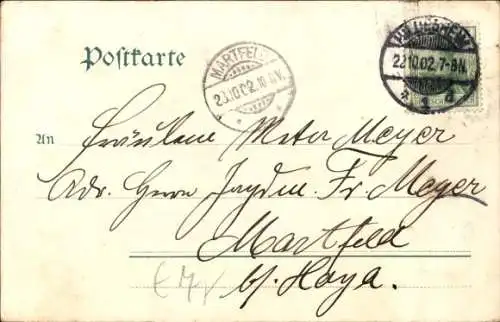 Postkarte
MARTFELD
23.10.02.10-11V.
HILDESHEIM
22.10.02.7-8N.
* 1 a
An Fräulein Meta Meyer
Adr. Herrn Fr. Meyer
Martfeld
b/ Hoya.